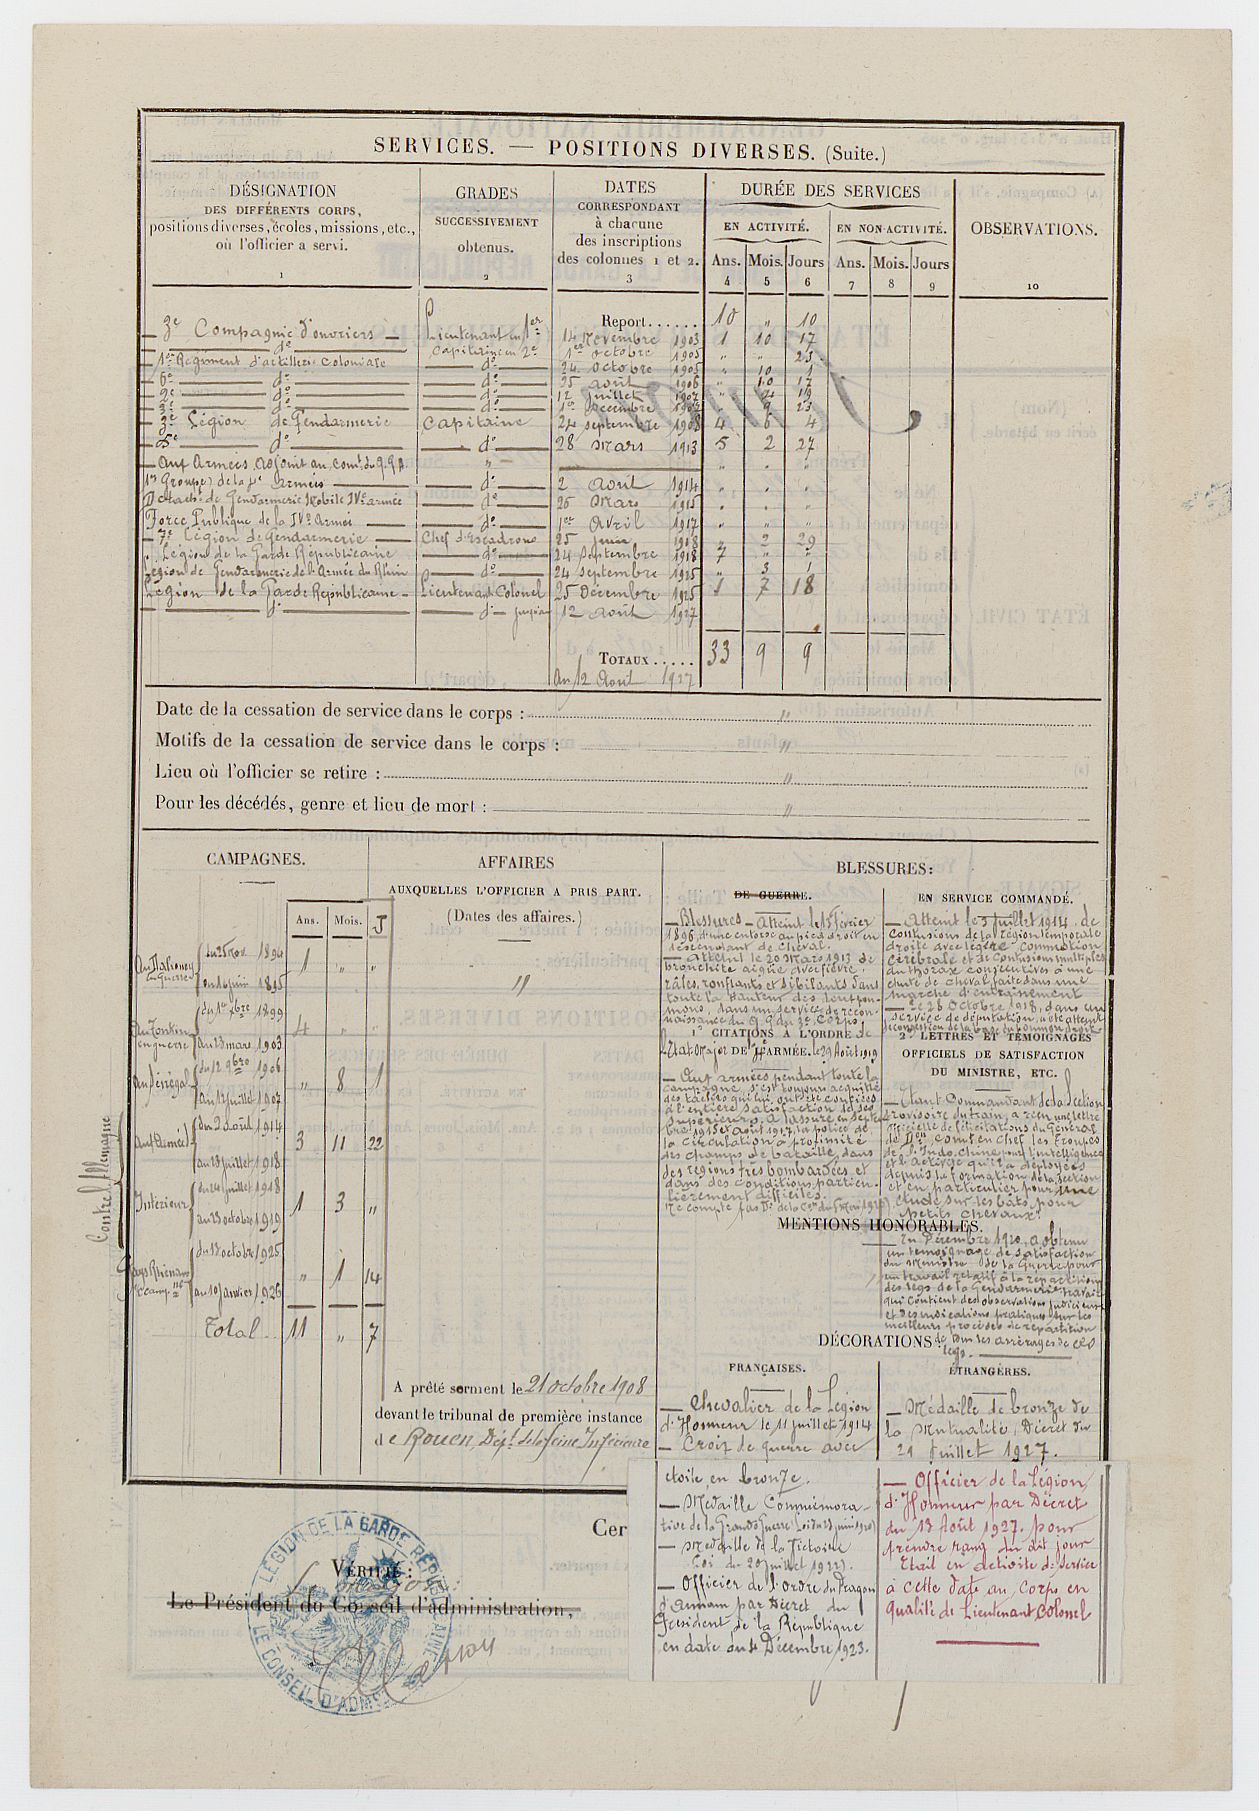 SERVICES. — POSITIONS DIVERSES. (Suite.)
DÉSIGNATION
DES DIFFÉRENTS CORPS,
positions diverses, écoles, missions, etc.,
où l'officier a servi.
1
GRADES
SUCCESSIVEMENT
obtenus.
2
DATES
CORRESPONDANT
à chacune
des inscriptions
des colonnes 1 et 2.
3
DURÉE DES SERVICES
EN ACTIVITÉ.
EN NON-ACTIVITÉ.
Ans. Mois. Jours Ans. Mois. Jours
4 5 6 7 8 9
OBSERVATIONS.
10
Report...... 10 " 10
3e Compagnie d'ouvriers — Lieutenant en 1er 14 Novembre 1903 1 10 17
— do — Capitaine en 2e 1er Octobre 1905 " " 23
1er Régiment d'artillerie Coloniale — do — 24 Octobre 1905 " 10 1
6e — do — — do — 25 août 1906 " 10 17
2e — do — — do — 12 juillet 1907 " 4 19
3e — do — — do — 1er Décembre 1907 " 9 23
3e Légion de Gendarmerie Capitaine 24 septembre 1908 4 6 4
5e — do — — do — 28 Mars 1913 5 2 27
— Aux Armées, Adjoint au Comt du Q.G.A. " " " "
1er Groupe) de la 4e Armées — do — 2 Août 1914 " " "
Détacht de Gendarmerie Mobile IVe armée — do — 26 Mars 1915 " " "
Force Publique de la IVe Armée — do — 1er Avril 1917 " " "
7e Légion de Gendarmerie — Chef d'Escadrons 25 juin 1918 " 2 29
Légion de la Garde Républicaine — do — 24 Septembre 1918 7 " "
Légion de Gendarmerie de l'Armée du Rhin — do — 24 septembre 1925 " 3 1
Légion de la Garde Républicaine — Lieutenant Colonel 25 Décembre 1925 1 7 18
— do — — do — jusqu'au 12 août 1927
TOTAUX..... 33 9 9
au 12 Août 1927
Date de la cessation de service dans le corps : "
Motifs de la cessation de service dans le corps : "
Lieu où l'officier se retire : "
Pour les décédés, genre et lieu de mort : "
CAMPAGNES.
Ans. Mois. J
Au Dahomey en guerre
du 25 nov. 1894
au 16 juin 1895
1 " "
Au Tonkin en guerre
du 1er 7bre 1899
au 13 mars 1903
4 " "
Au Sénégal
du 12 9bre 1906
au 12 juillet 1907
" 8 1
Contre l'Allemagne
Aux Armées
du 2 août 1914
au 23 juillet 1918
3 11 22
Intérieur
du 24 juillet 1918
au 23 octobre 1919
1 3 "
Pays Rhénans
du 12 octobre 1925
au 10 janvier 1926
" 1 14
Total 11 " 7
AFFAIRES
AUXQUELLES L'OFFICIER A PRIS PART.
(Dates des affaires.)
"
A prêté serment le 21 octobre 1908
devant le tribunal de première instance
de Rouen, Dépt. de la Seine Inférieure
BLESSURES:
DE GUERRE.
— Blessures — Atteint le 15 février
1896 d'une entorse au pied droit en
descendant de cheval.
— Atteint le 20 Mars 1913 de
bronchite aigüe avec fièvre,
râles, ronflants et sibilants dans
toute la hauteur des deux pou-
mons, dans un service de recon-
naissance du Q.G. du 3e Corps.
1° CITATIONS À L'ORDRE de
l'Etat Major DE l'ARMÉE. le 29 Août 1919
— Aux armées pendant toute la
campagne, s'est toujours acquitté
des tâches qui lui ont été confiées
à l'entière satisfaction de ses
supérieurs. A assuré en septem-
bre 1915 et août 1917, la police de
la circulation à proximité
des champs de bataille, dans
des régions très bombardées et
dans des conditions particu-
lièrement difficiles.
EN SERVICE COMMANDÉ.
— Atteint le 5 juillet 1914, de
contusions de la région temporale
droite avec légère commotion
cérébrale et de contusions multiples
au thorax consécutives à une
chute de cheval faite dans une
marche d'entraînement
— Le 28 Octobre 1918, dans un
service de députation, a été atteint
2° LETTRES ET TÉMOIGNAGES
OFFICIELS DE SATISFACTION
DU MINISTRE, ETC.
— Étant Commandant de la Section
provisoire du train, a reçu une lettre
officielle de félicitations du Général
de Don Comt en Chef les Troupes
de l'Indo-Chine pour l'intelligence
et l'activité qu'il a déployées
depuis la formation de la section
et en particulier pour une
étude sur les bâts pour
petits chevaux.
MENTIONS HONORABLES.
— En Décembre 1920, a obtenu
un témoignage de satisfaction
du Ministre de la Guerre pour
un travail relatif à la répartition
des legs de la Gendarmerie, travail
qui contient des observations judicieuses
et des indications pratiques sur les
meilleurs procédés de répartition
de tous les arrérages de ces
legs.
DÉCORATIONS
FRANÇAISES.
— Chevalier de la Légion
d'Honneur le 11 juillet 1914
— Croix de guerre avec
étoile en bronze.
— Médaille Commémora-
tive de la Grande Guerre Loi du 23 juin 1920
— Médaille de la Victoire
Loi du 20 juillet 1922.
— Officier de l'ordre du Dragon
d'Annam par Décret du
Président de la République
en date du 4 Décembre 1923.
ÉTRANGÈRES.
— Médaille de bronze de
la Mutualité, Décret du
21 juillet 1927.
— Officier de la Légion
d'Honneur par Décret
du 13 Août 1927 pour
prendre rang du dit jour
Était en activité de service
à cette date au Corps en
qualité de Lieutenant Colonel
Cer
VÉRIFIÉ :
Le Major :
Le Président du Conseil d'administration,
LEGION DE LA GARDE REPUBLICAINE
LE CONSEIL D'ADM